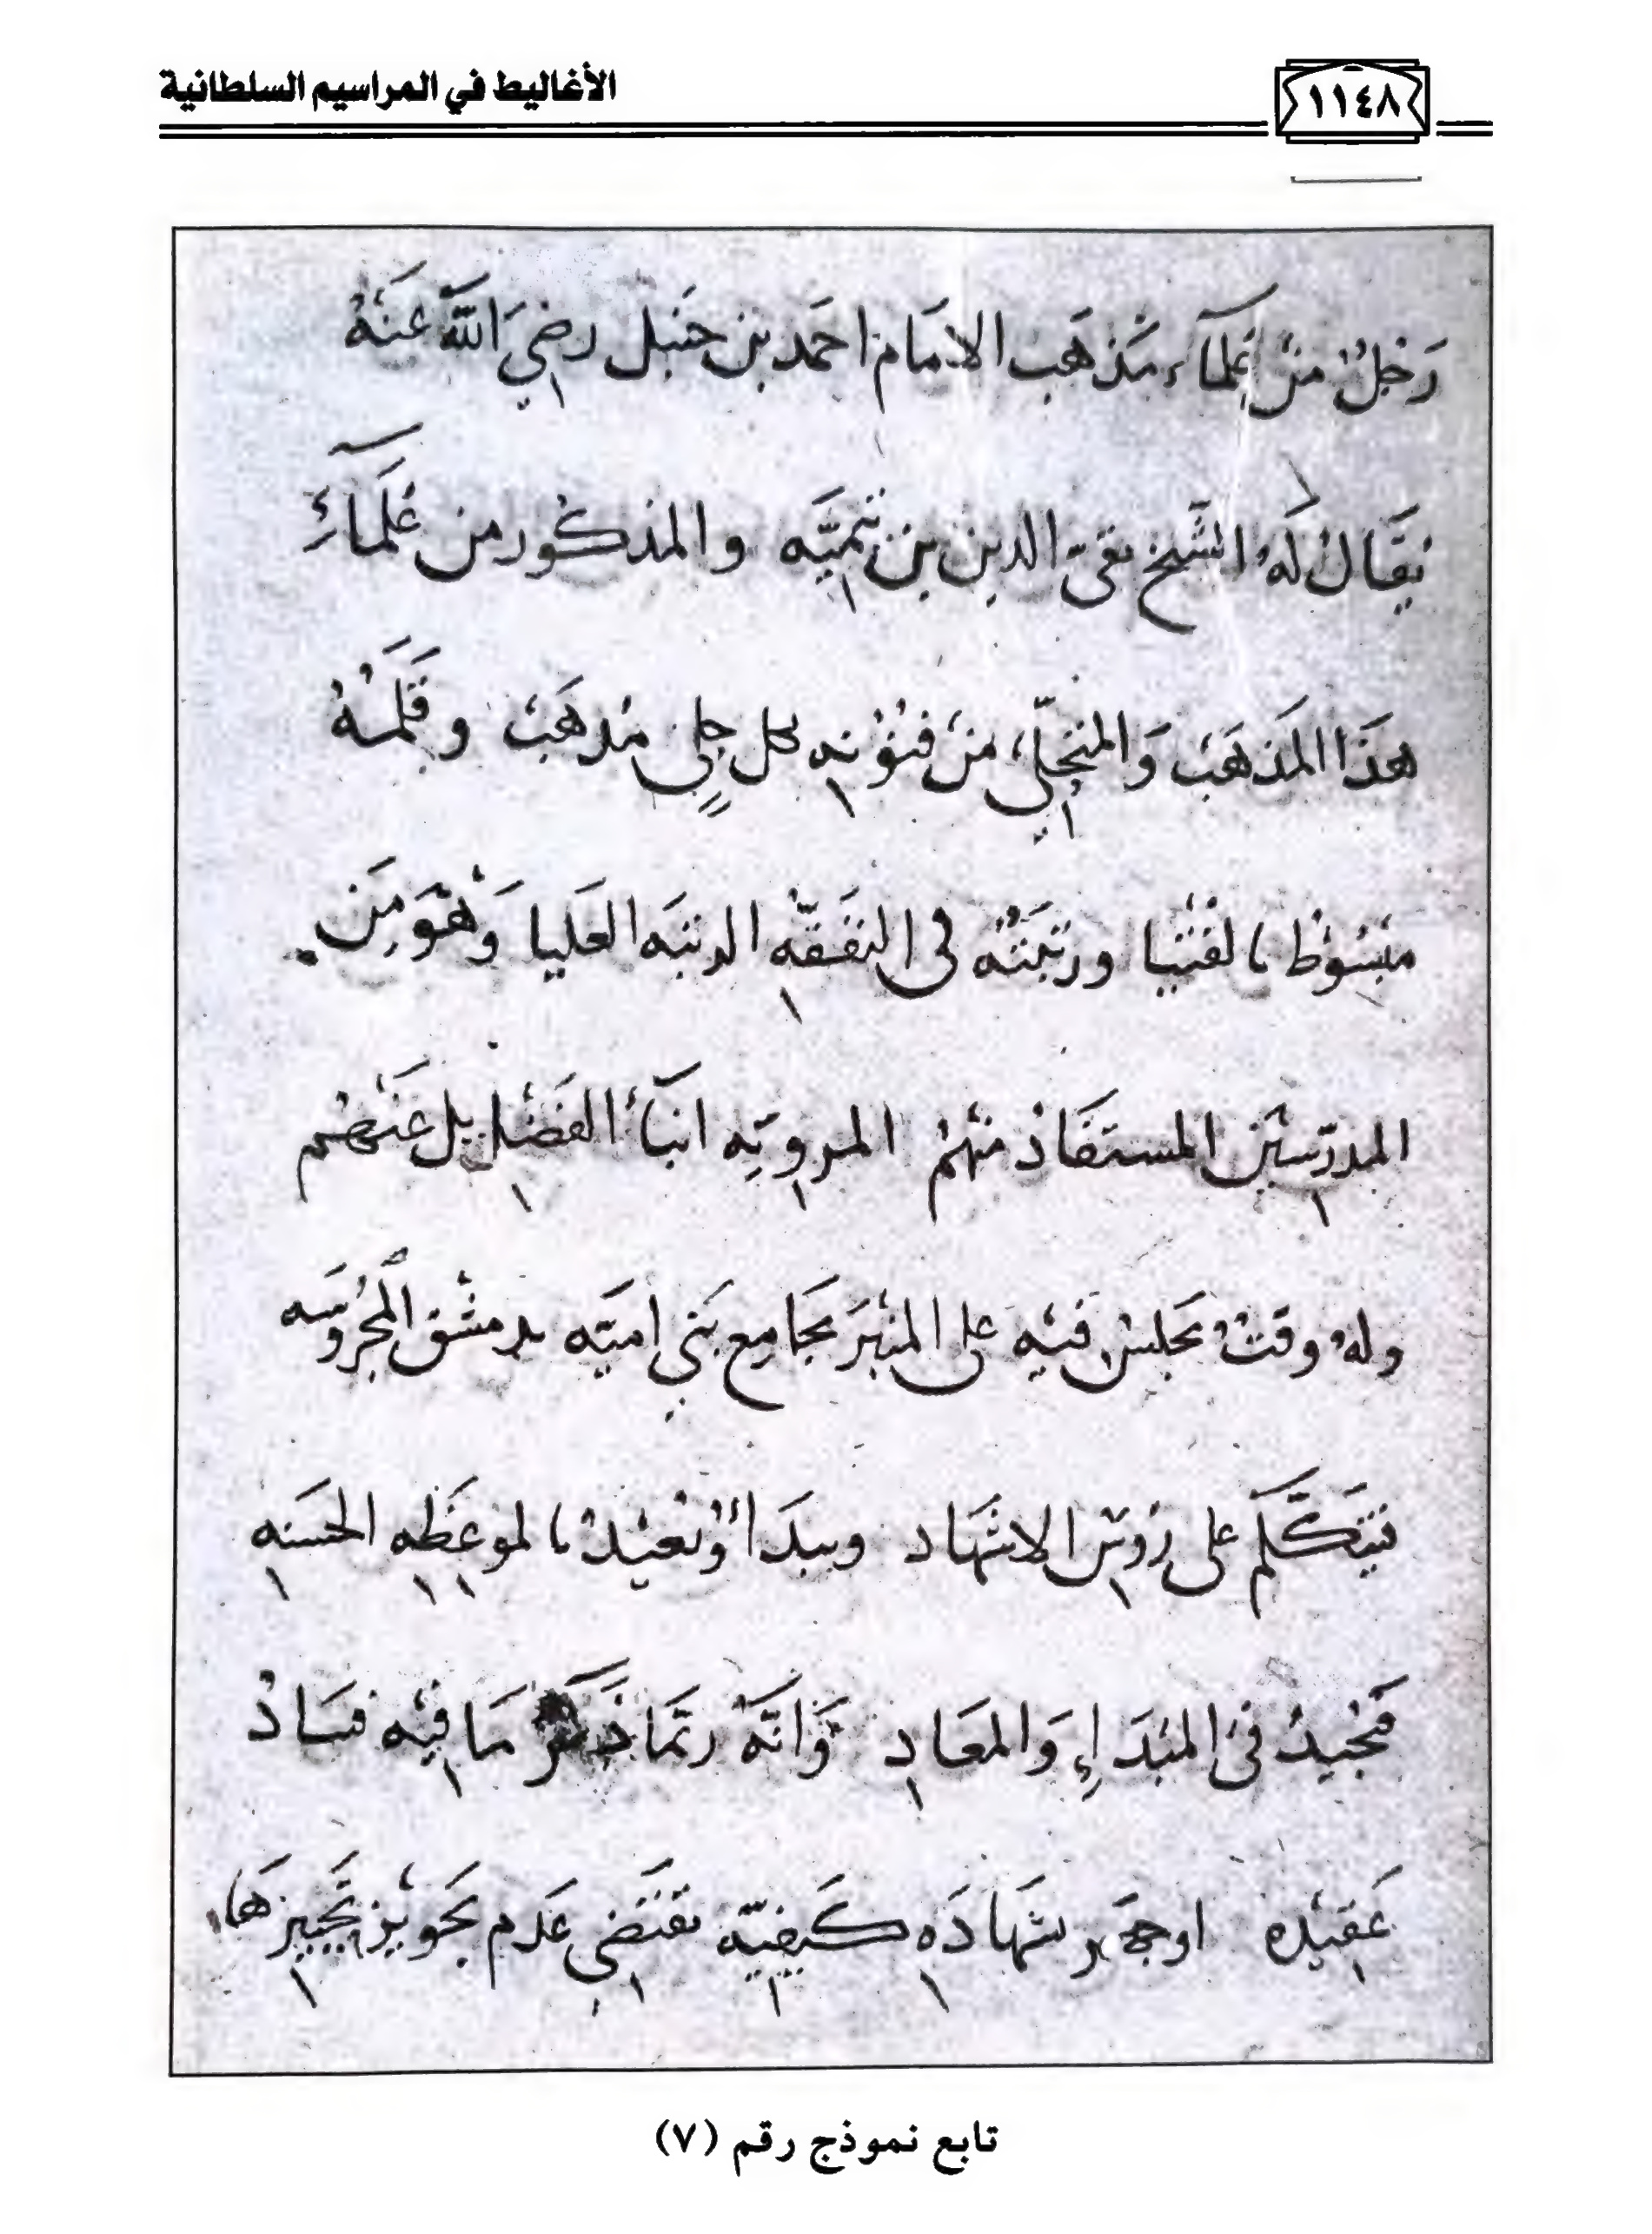 ١١٤٨
الأغاليط في المراسيم السلطانية
رَجُلٌ مِنْ عُلَمَآءِ مَذْهَب الامَام احمَد بن حنبَل رضِيَ اللهُ عَنْهُ
يقَالُ لَهُ الشَّيخ تقىّ الدين بن تيميَّه والمذكور من عُلَمآءِ
هَذَا المَذهَبْ وَالمنجلّي مِنْ فنُوُنه كل جلي مُذهَبْ وقَلمُهُ
مبْسُوطْ بالفُتْيا ورتبَتُه فى التفَقّه الرتبَه العَليا وَهْوَ مِنَ
المدرّسِيْن المستفَادْ منهُمْ المرويّه انبَآءُ الفَضْل بل عَنْهُم
ولهُ وقتْ يجلسْ فيْه على المنْبَر بجَامِع بَني اميَّه بدمشْق المحْرُوسَه
فيتَكَلَّم على رُوس الاشهَاد ويبدَأ وُيعْيدْ بالموعَظه الحسَنه
فَيجْيدُ فْى المبْدَإِ وَالمعَادِ وَانّهُ ربّمَا ذَكَرَ مَا فيْه فسَادْ
عَقيْده بشهَادَه كَيفيّه تقتَضي عَدم تجويْز تحْييزهَا
تابع نموذج رقم (٧)